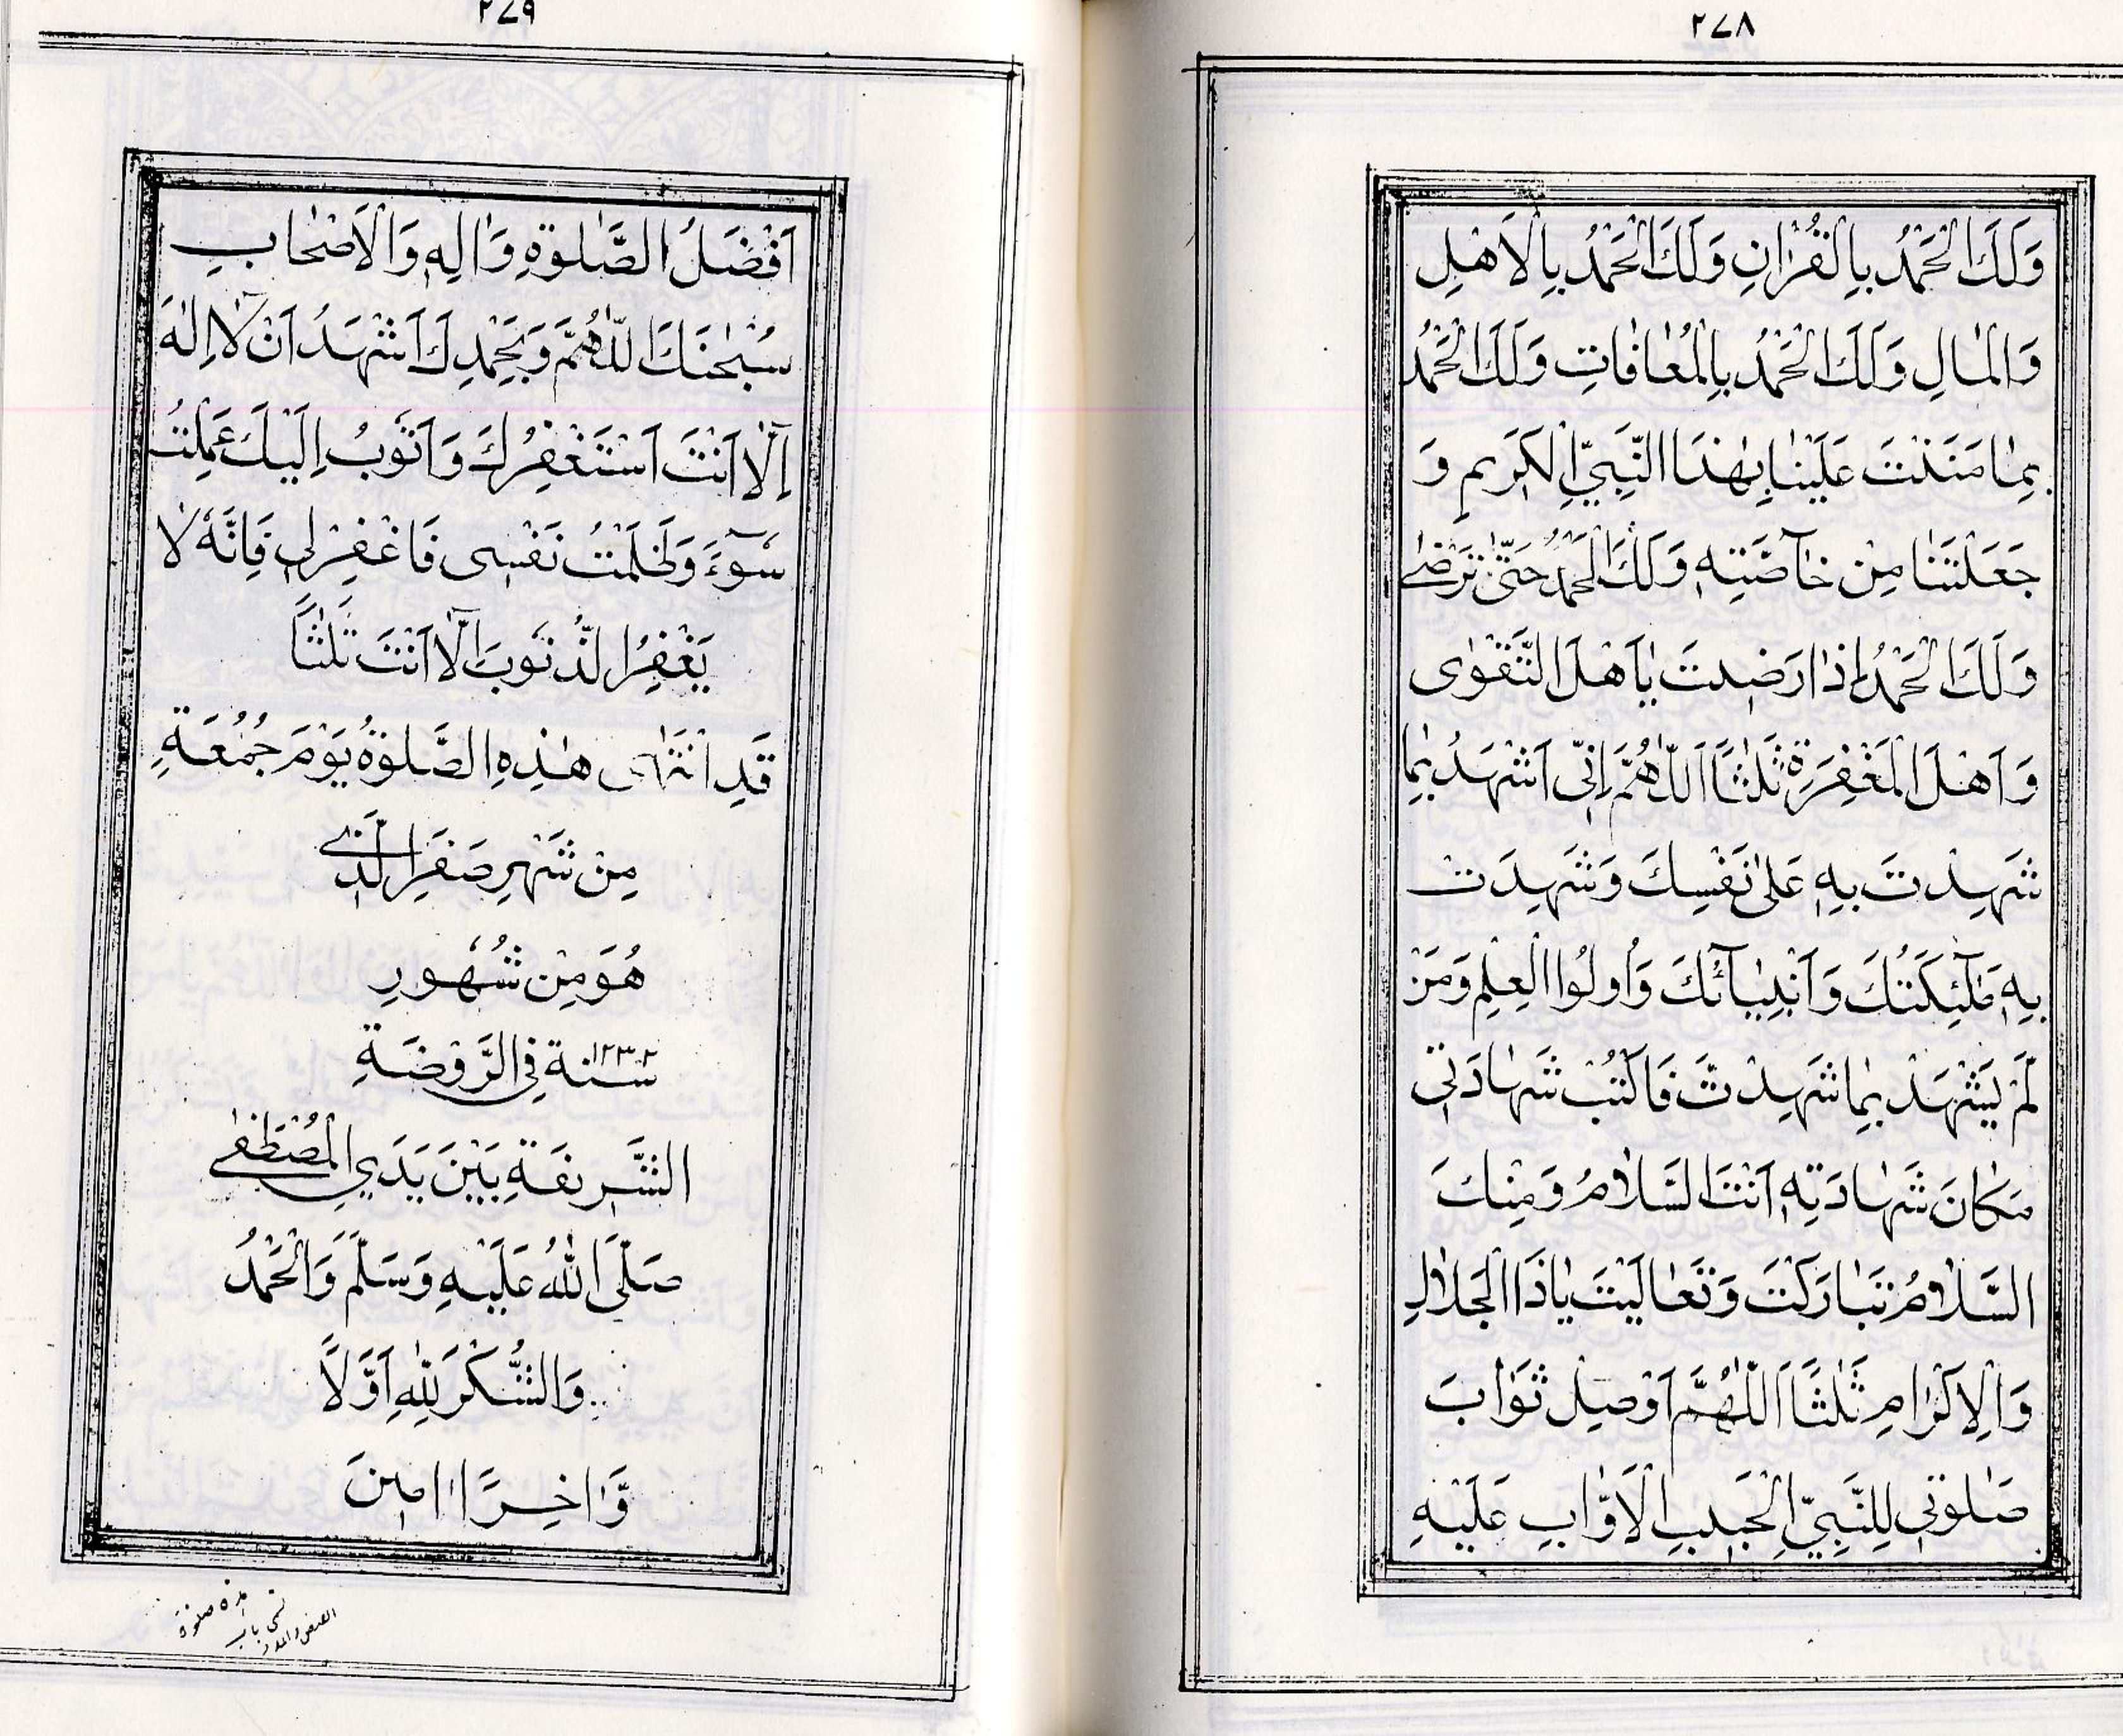 ٢٧٨
وَلَكَ الْحَمْدُ بِالْقُرْاٰنِ وَلَكَ الْحَمْدُ بِالْاَهْلِ
وَالْمٰالِ وَلَكَ الْحَمْدُ بِالْمُعٰافٰاتِ وَلَكَ الْحَمْدُ
بِمٰا مَنَنْتَ عَلَيْنٰا بِهٰذَا النَّبِيِّ الْكَرِيمِ وَ
جَعَلْتَنٰا مِنْ خٰاۤصَّتِهِ وَلَكَ الْحَمْدُ حَتّٰى تَرْضٰى
وَلَكَ الْحَمْدُ اِذٰا رَضِيتَ يٰاۤ اَهْلَ التَّقْوٰى
وَاَهْلَ الْمَغْفِرَةِ ثَلٰثًا اَللّٰهُمَّ اِنِّى اَشْهَدُ بِمٰا
شَهِدْتَ بِهِ عَلٰى نَفْسِكَ وَشَهِدَتْ
بِهِ مَلٰۤئِكَتُكَ وَاَنْبِيٰاۤئُكَ وَاُولُوا الْعِلْمِ وَمَنْ
لَمْ يَشْهَدْ بِمٰا شَهِدْتَ فَاكْتُبْ شَهٰادَتِى
مَكٰانَ شَهٰادَتِهِ اَنْتَ السَّلٰامُ وَمِنْكَ
السَّلٰامُ تَبٰارَكْتَ وَتَعٰالَيْتَ يٰا ذَا الْجَلٰالِ
وَالْاِكْرٰامِ ثَلٰثًا اَللّٰهُمَّ اَوْصِلْ ثَوٰابَ
صَلٰوتِى لِلنَّبِيِّ الْحَبِيبِ الْاَوّٰابِ عَلَيْهِ
٢٧٩
اَفْضَلُ الصَّلٰوةِ وَاٰلِهِ وَالْاَصْحٰابِ
سُبْحٰنَكَ اللّٰهُمَّ وَبِحَمْدِكَ اَشْهَدُ اَنْ لٰاۤ اِلٰهَ
اِلّٰاۤ اَنْتَ اَسْتَغْفِرُكَ وَاَتُوبُ اِلَيْكَ عَمِلْتُ
سُوۤءً وَظَلَمْتُ نَفْسِى فَاغْفِرْلِى فَاِنَّهُ لٰا
يَغْفِرُ الذُّنُوبَ اِلّٰاۤ اَنْتَ ثَلٰثًا
قَدِ انْتَهٰى هٰذِهِ الصَّلٰوةُ يَوْمَ جُمُعَةِ
مِنْ شَهْرِ صَفَرِ الَّذِى
هُوَ مِنْ شُهُورِ
سنة ١٢٣٢ فِى الرَّوْضَةِ
الشَّرِيفَةِ بَيْنَ يَدَيِ الْمُصْطَفٰى
صَلَّى اللّٰهُ عَلَيْهِ وَسَلَّمَ وَالْحَمْدُ
وَالشُّكْرُ لِلّٰهِ اَوَّلًا
وَّاٰخِرًا اٰمِينَ
هذه صلوة